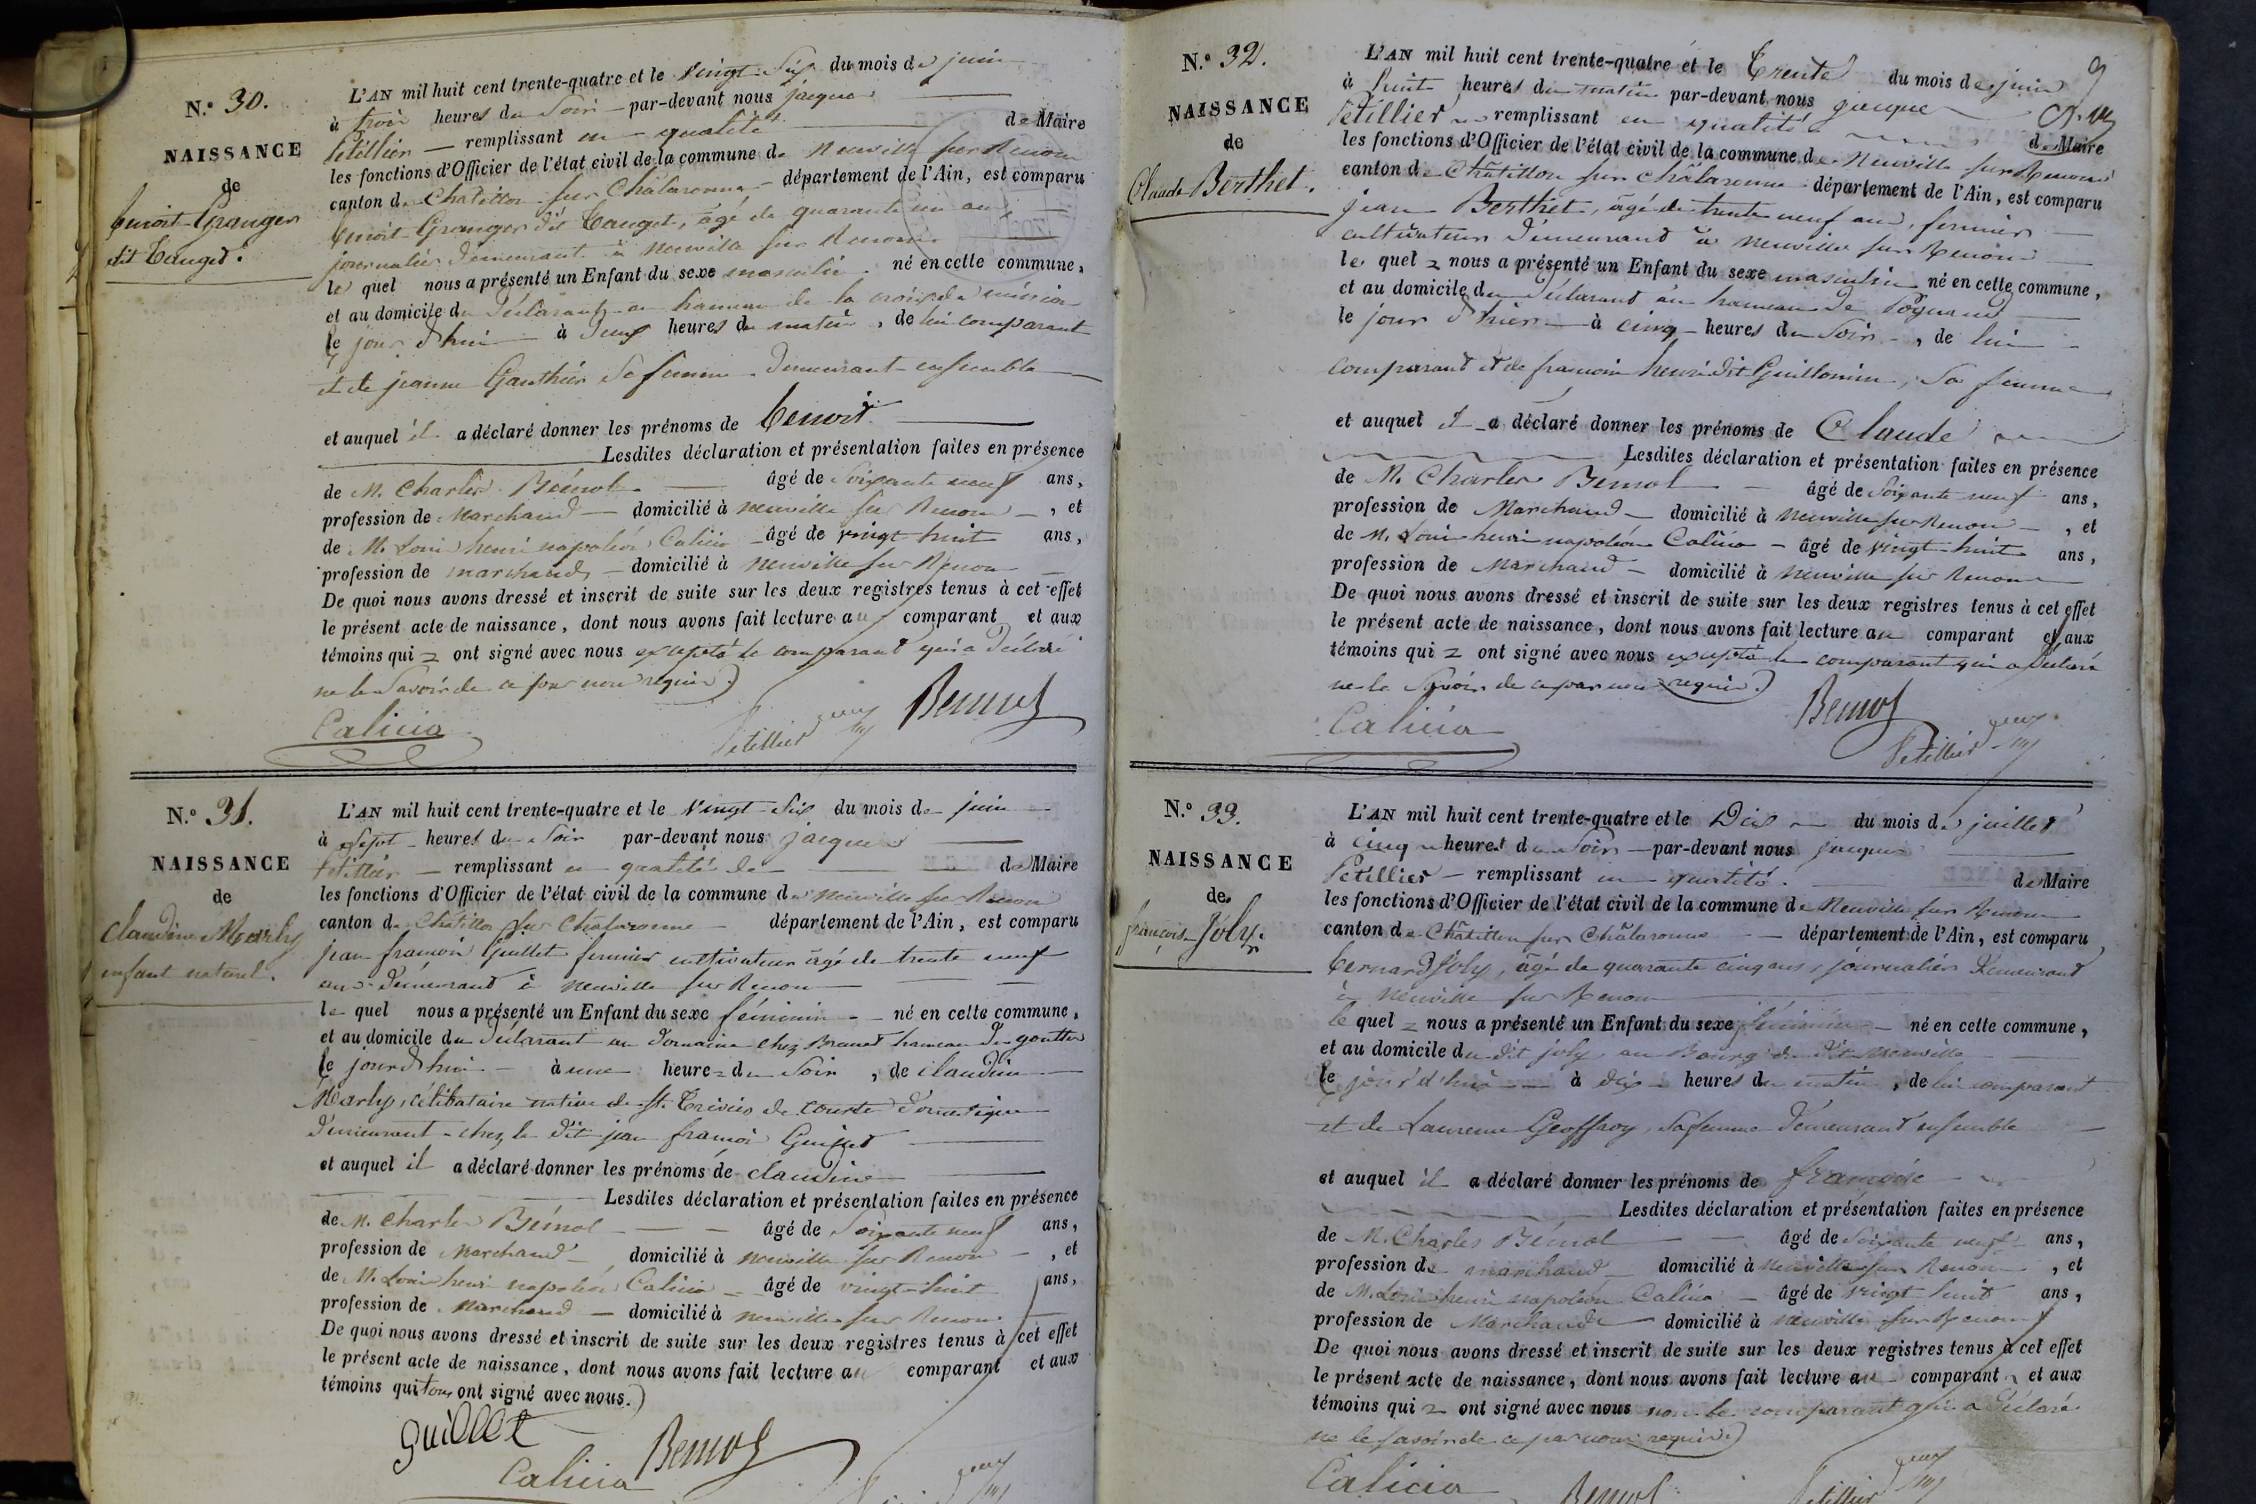 N.° 30.
NAISSANCE
de
benoit Granger
dit Tanget.
L'AN mil huit cent trente-quatre et le vingt-six du mois de juin
à trois heures du soir par-devant nous jacques
Petillier remplissant en qualité de Maire
les fonctions d'Officier de l'état civil de la commune de Neuville sur Renon
canton de Chatillon sur Chalaronne département de l'Ain, est comparu
benoit Granger dit Tanget, âgé de quarante un ans,
journalier demeurant à neuville sur Renon
le quel nous a présenté un Enfant du sexe masculin né en cette commune,
et au domicile du déclarant au hameau de la croix de mission
le jour d'hui à deux heures du matin, de lui comparant
et de jeanne Gauthier sa femme demeurant ensemble
et auquel il a déclaré donner les prénoms de benoit
Lesdites déclaration et présentation faites en présence
de M. Charles Bémol âgé de soixante neuf ans,
profession de Marchand domicilié à neuville sur Renon, et
de M. Louis henri napoléon Calicia âgé de vingt huit ans,
profession de marchand domicilié à Neuville sur Renon
De quoi nous avons dressé et inscrit de suite sur les deux registres tenus à cet effet
le présent acte de naissance, dont nous avons fait lecture au comparant et aux
témoins qui ont signé avec nous excepté le comparant qui a déclaré
ne le savoir de ce par nous requis.)
Calicia Petillier Bemol
N.° 31.
NAISSANCE
de
Claudine Marly
enfant naturel.
L'AN mil huit cent trente-quatre et le vingt-six du mois de juin
à sept heures du soir par-devant nous jacques
Petillier remplissant en qualité de de Maire
les fonctions d'Officier de l'état civil de la commune de neuville sur Renon
canton de Chatillon sur Chalaronne département de l'Ain, est comparu
jean françois Guillet fermier cultivateur âgé de trente neuf
ans demeurant à neuville sur Renon
le quel nous a présenté un Enfant du sexe féminin né en cette commune,
et au domicile du déclarant au domaine chez Brunet hameau des gouttes
le jour d'hui à une heure du soir, de claudine
Marly, célibataire native de St. Trivier de courtes domestique
demeurant chez le dit jean françois Guillet
et auquel il a déclaré donner les prénoms de claudine
Lesdites déclaration et présentation faites en présence
de M. Charles Bémol âgé de soixante neuf ans,
profession de Marchand domicilié à neuville sur Renon, et
de M. Louis henri napoléon Calicia âgé de vingt-huit ans,
profession de Marchand domicilié à neuville sur Renon
De quoi nous avons dressé et inscrit de suite sur les deux registres tenus à cet effet
le présent acte de naissance, dont nous avons fait lecture au comparant et aux
témoins qui tous ont signé avec nous.)
Guillet
Calicia Bemol
N.° 32.
NAISSANCE
de
Claude Berthet.
9
L'AN mil huit cent trente-quatre et le Trente du mois de juin
à huit heures du matin par-devant nous jacques
Petillier remplissant en qualité de Maire
les fonctions d'Officier de l'état civil de la commune de Neuville sur Renon
canton de Châtillon sur Chalaronne département de l'Ain, est comparu
jean Berthet, âgé de trente neuf ans, fermier
cultivateur demeurand à neuville sur Renon
le quel nous a présenté un Enfant du sexe masculin né en cette commune,
et au domicile du déclarand au hameau de
le jour d'hier à cinq heures du soir, de lui
comparant et de françoise henri dit Guillomin, sa femme
et auquel il a déclaré donner les prénoms de Claude
Lesdites déclaration et présentation faites en présence
de M. Charles Bémol âgé de soixante neuf ans,
profession de Marchand domicilié à Neuville sur Renon, et
de M. Louis henri napoléon Calicia âgé de vingt-huit ans,
profession de Marchand domicilié à neuville sur Renon
De quoi nous avons dressé et inscrit de suite sur les deux registres tenus à cet effet
le présent acte de naissance, dont nous avons fait lecture au comparant et aux
témoins qui ont signé avec nous excepté le comparant qui a déclaré
ne le savoir de ce par nous requis.)
Calicia Bemol Petillier
N.° 33.
NAISSANCE
de
françoise Joly.
L'AN mil huit cent trente-quatre et le Dix du mois de juillet
à cinq heures du soir par-devant nous jacques
Petillier remplissant en qualité de Maire
les fonctions d'Officier de l'état civil de la commune de Neuville sur Renon
canton de Châtillon sur Châlaronne département de l'Ain, est comparu
bernard Joly, âgé de quarante cinq ans, journalier demeurand
à Neuville sur Renon
le quel nous a présenté un Enfant du sexe féminin né en cette commune,
et au domicile du dit joly au Bourg du dit Neuville
le jour d'hui à dix heures du matin, de lui comparant
et de Laurence Geoffroy, sa femme demeurand ensemble
et auquel il a déclaré donner les prénoms de françoise
Lesdites déclaration et présentation faites en présence
de M. Charles Bémol âgé de soixante neuf ans,
profession de marchand domicilié à neuville sur Renon, et
de M. Louis henri napoléon Calicia âgé de vingt huit ans,
profession de Marchand domicilié à neuville sur Renon
De quoi nous avons dressé et inscrit de suite sur les deux registres tenus à cet effet
le présent acte de naissance, dont nous avons fait lecture au comparant et aux
témoins qui ont signé avec nous non le comparant qui a déclaré
ne le savoir de ce par nous requis.)
Calicia Bemol Petillier